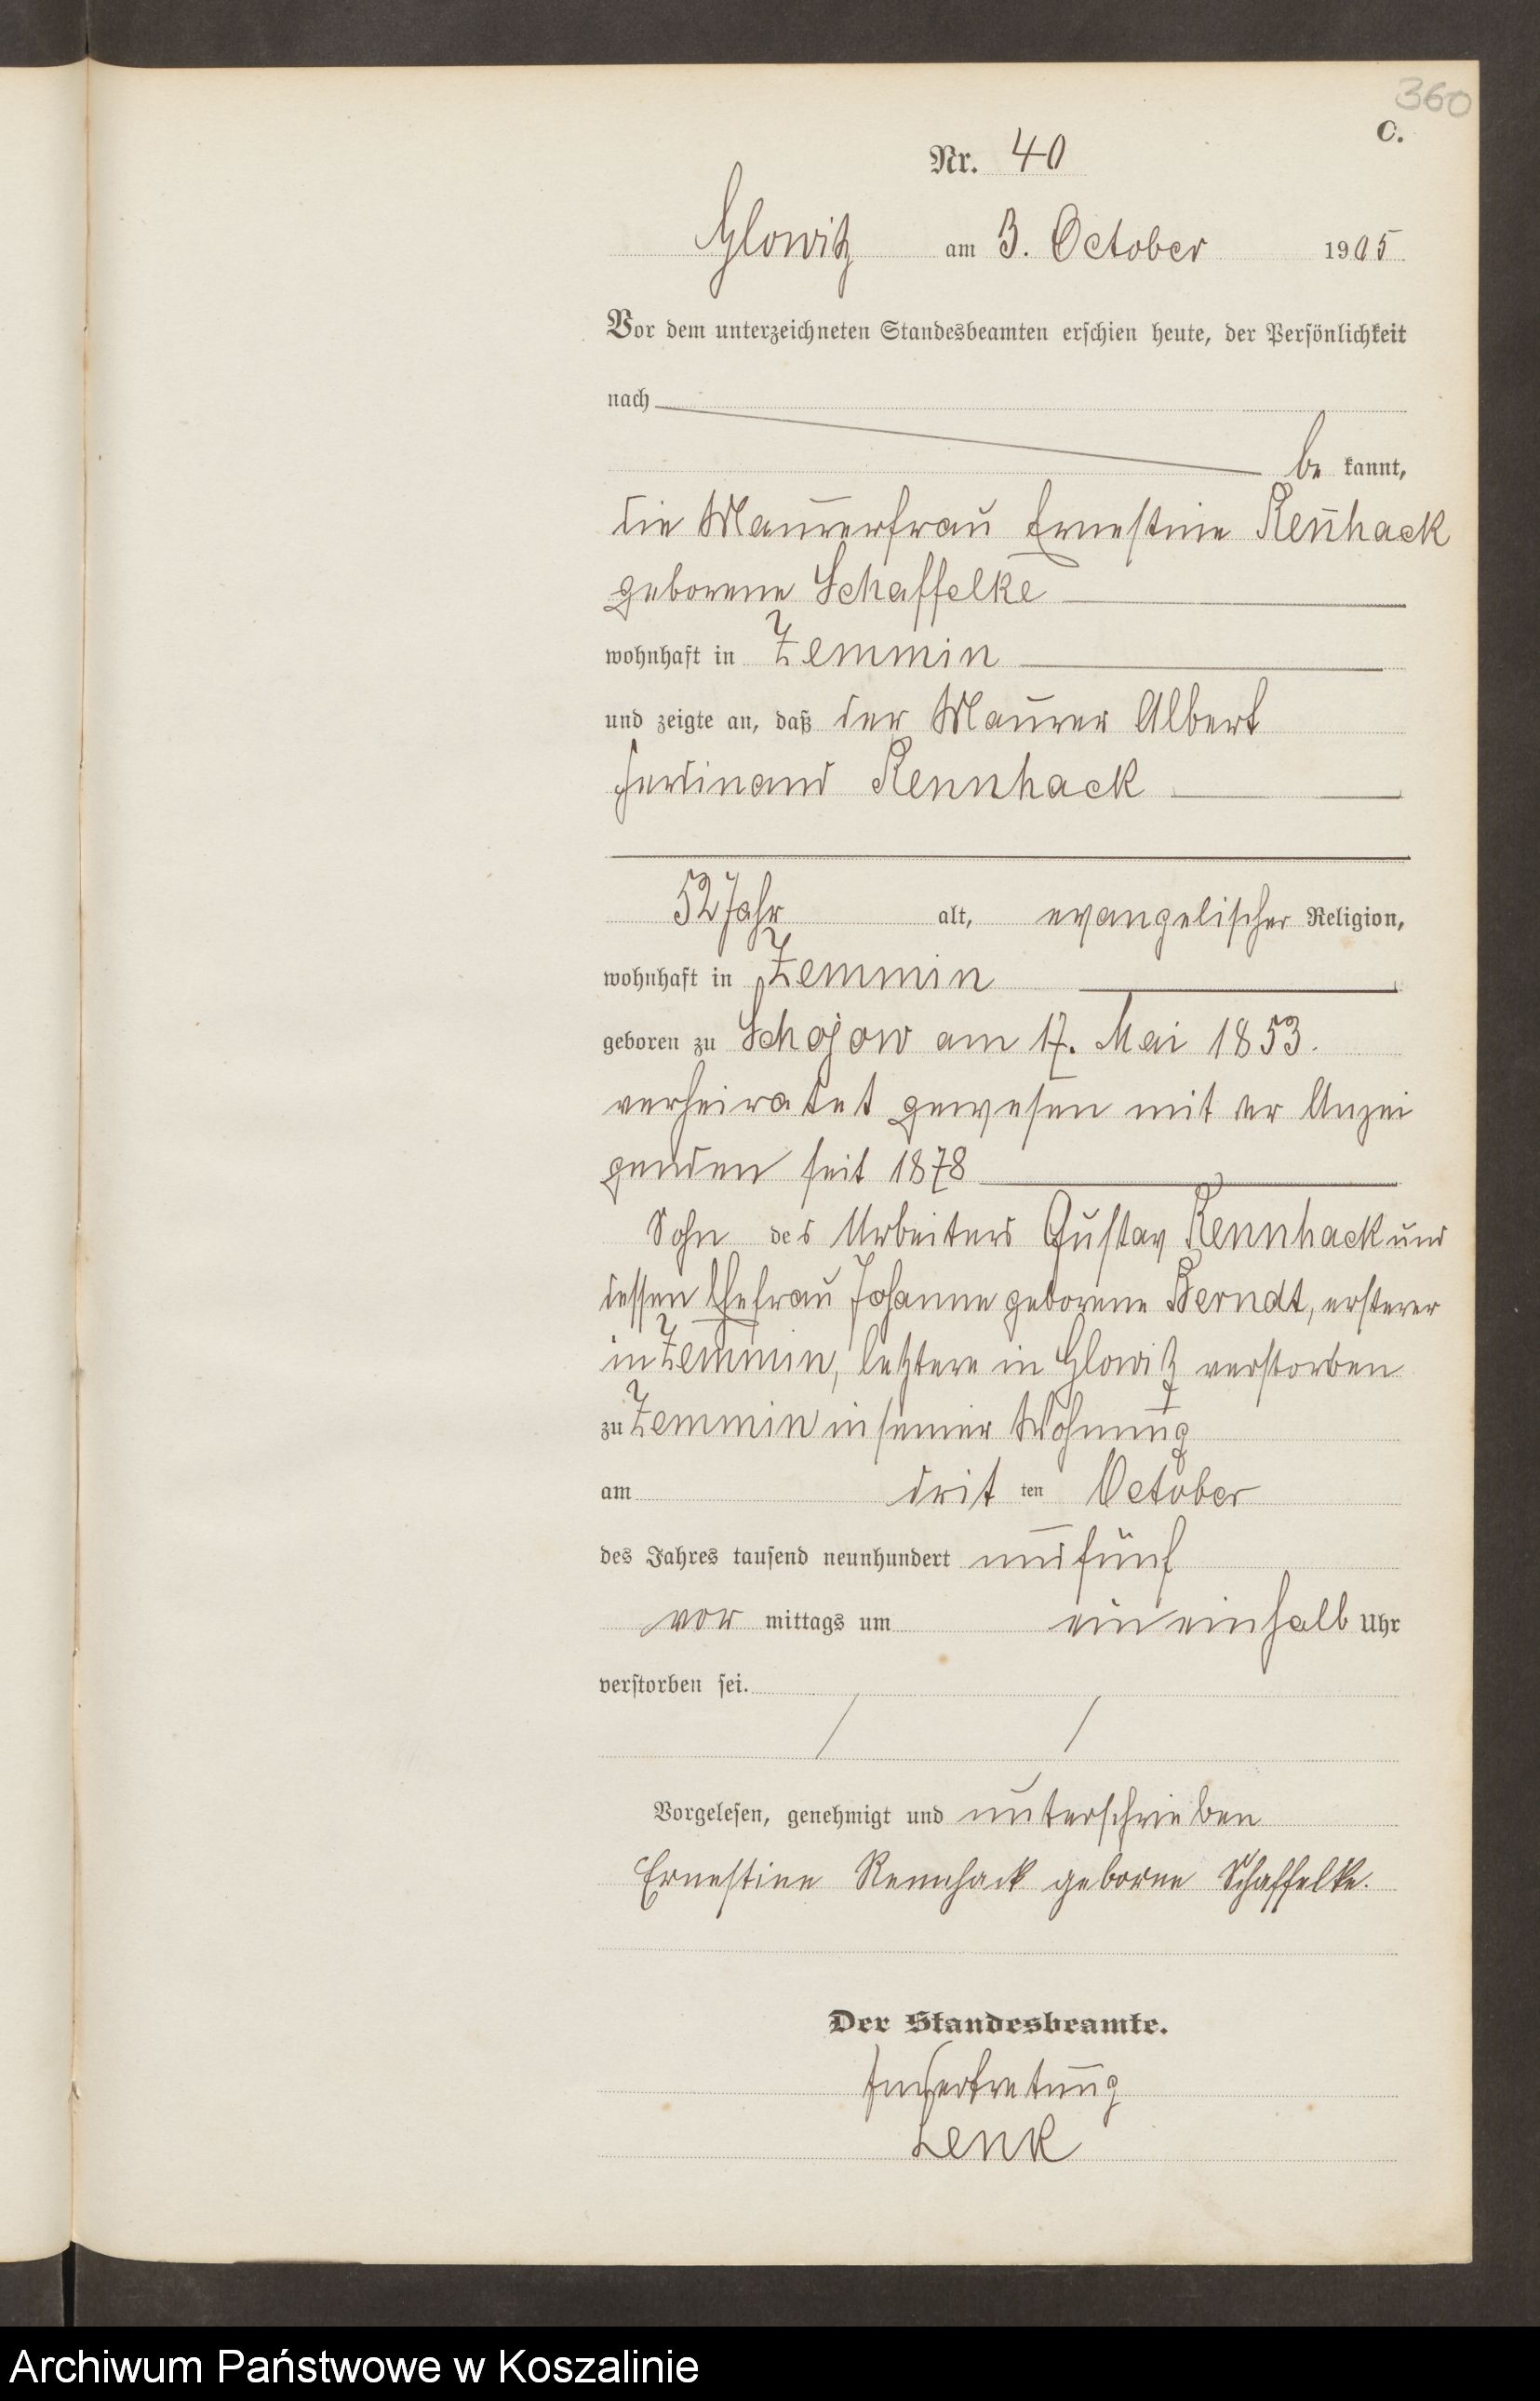 360
C.
Nr. 40
Glowitz am 3. October 1905
Vor dem unterzeichneten Standesbeamten erschien heute, der Persönlichkeit
nach
be kannt,
die Maurerfrau Ernestine Ren̄hack
geborene Schaffelke
wohnhaft in Zemmin
und zeigte an, daß der Maurer Albert
Ferdinand Rennhack
52 Jahr alt, evangelischer Religion,
wohnhaft in Zemmin
geboren zu Schojow am 17. Mai 1853.
verheiratet gewesen mit der Anzei
genden seit 1878
Sohn des Arbeiters Gustav Rennhack und
dessen Ehefrau Johanne geborene Berndt, ersterer
in Zemmin, letztere in Glowitz verstorben
zu Zemmin in seiner Wohnung
am drit ten October
des Jahres tausend neunhundert und fünf
vor mittags um ein einhalb Uhr
verstorben sei.
Vorgelesen, genehmigt und unterschrieben
Ernestine Rennhack geborne Schaffelke.
Der Standesbeamte.
In Vertretung
Lenk
Archiwum Państwowe w Koszalinie